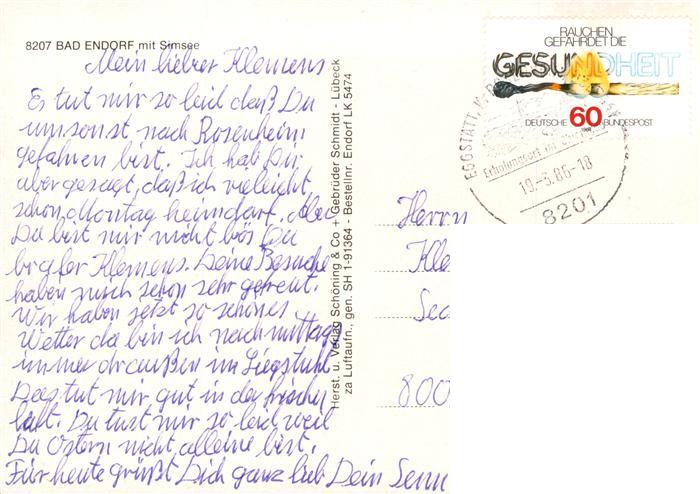 8207 BAD ENDORF, mit Simsee
Mein lieber Klemens
Es tut mir so leid daß Du
umsonst nach Rosenheim
gefahren bist. Ich hab Dir
aber gesagt, daß ich vieleicht
schon Montag heimdarf. Aber
Du bist mir nicht bös Du
brafer Klemens. Deine Besuche
haben mich schon sehr gefreut.
Wir haben jetzt so schönes
Wetter da bin ich nachmittag
immer draußen im Liegstuhl
Das tut mir gut in der frischen
Luft. Du tust mir so leid weil
Du Ostern nicht alleine bist.
Für heute grüßt Dich ganz lieb Dein
Herst. u. Verlag Schöning & Co + Gebrüder Schmidt - Lübeck
za Luftaufn., gen. SH 1-91364 - Bestellnr. Endorf LK 5474
RAUCHEN
GEFÄHRDET DIE
GESUNDHEIT
DEUTSCHE 60 BUNDESPOST
EGGSTÄTT
Erholungsort
10.-3.86-18
8201
Herrn
Kle
800